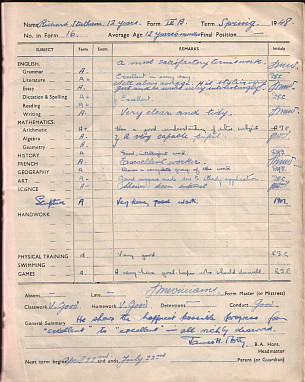 Name Richard Statham. 12 years. Form III B. Term Spring 1948
No. in Form 16. Average Age 12 years 6 months Final Position —
SUBJECT Term Exam. REMARKS Initials
ENGLISH. A most satisfactory term's work.
Grammar A
Literature A+ Excellent in every way
Essay A
Dictation & Spelling A Excellent.
Reading A
Writing A. Very clear and tidy.
MATHEMATICS.
Arithmetic A+ has a good understanding of this subject
Algebra A A very capable pupil.
Geometry A
HISTORY A-
FRENCH A. Excellent worker.
GEOGRAPHY A
ART A
SCIENCE A- Shows keen interest
Scripture A Very keen, good work.
HANDWORK
PHYSICAL TRAINING A. Very good
SWIMMING
GAMES A. A very keen games player who should do well.
Absent — Late — Form Master (or Mistress)
Classwork V. Good Homework V. Good Detentions — Conduct Good
General Summary He shows the happiest possible progress from
"excellent" to "excellent" – all richly deserved.
B.A. Hons.
Headmaster
Next term begins April 22nd and ends July 22nd Parent (or Guardian)